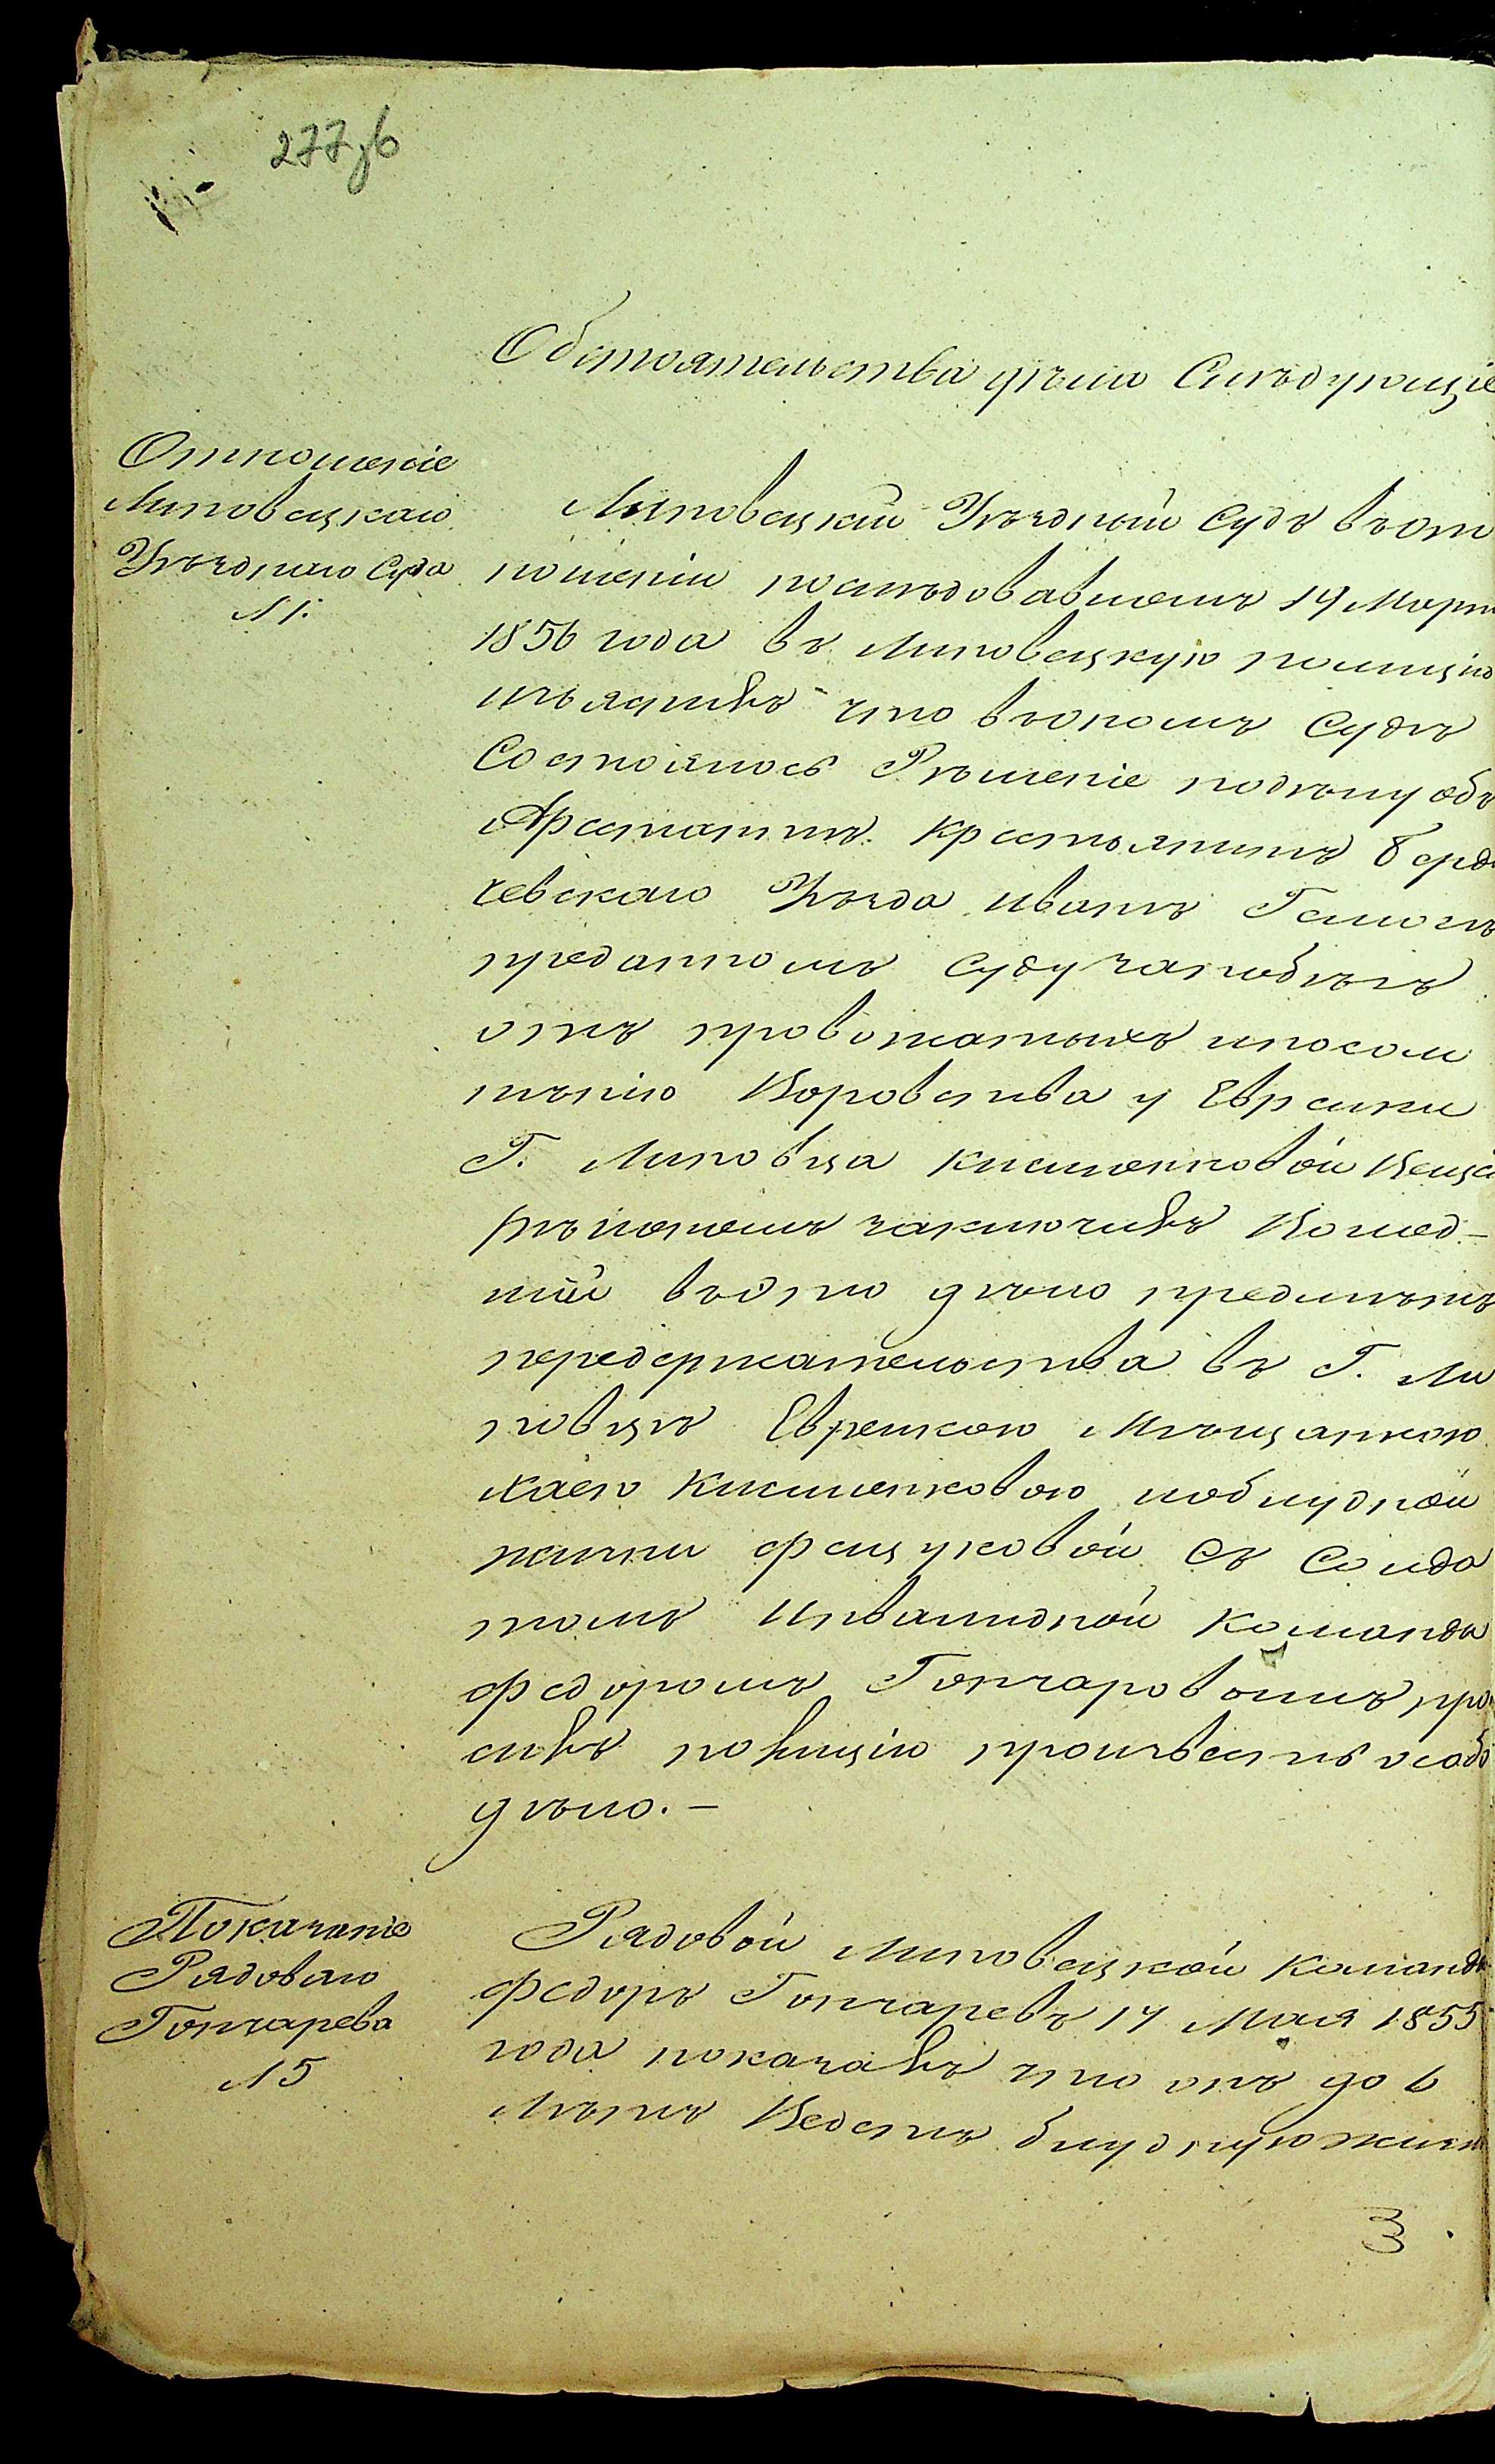 277зв
Обстоятельства дѣла Слѣдующіе
Отношеніе
Липовецкаго
Уѣзднаго Суда
Л 1.
Липовецкій Уѣздный Судъ въ от
ношеніи послѣдовавшемъ 14 Март
1856 года въ Липовецкую полицію
изъяснивъ что въ ономъ Судѣ
Состоялось Рѣшеніе по дѣлу объ
Арестантѣ крестьянинѣ Берди
чевскаго Уѣзда Иванѣ
преданномъ Суду за побѣгъ
отъ провожатыхъ и по сом
нѣнію Воровства у Еврейки
Г. Липовца Кисиленковой Вещей
рѣшеніемъ заключивъ Вошед-
шій въ это дѣло предмѣтъ
передержательства въ Г. Ли
повцѣ Еврейкою Мѣщанкою
Хаею Кисиленковою и облудной
жизни Фещуковой Съ Солда
томъ Инвалидной команды
Федоромъ Гончаровымъ про
силъ полицію произвесть особо
дѣло.-
Показаніе
Рядоваго
Гончарева
Л 5
Рядовой Липовецкой команды
Федоръ Гончаревъ 14 Мая 1855
года показалъ что онъ до 6
Лѣтъ Ведетъ блудную жизн
3.